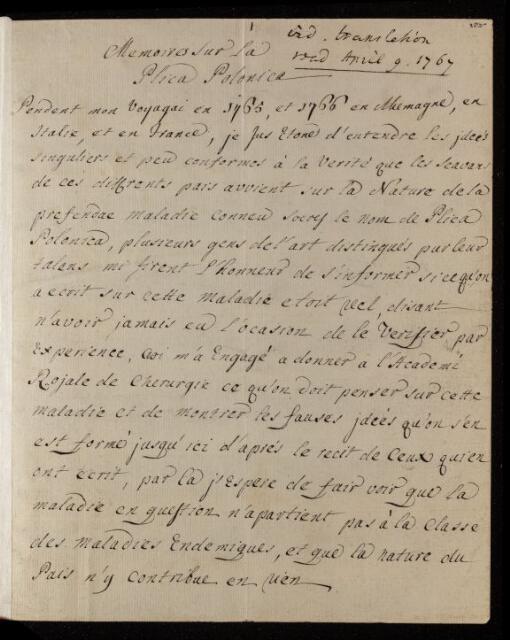 vid. translation
read April 9. 1767
Memoires sur La
Plica Polonica
Pendent mon Voyagai en 1765, et 1766 en Allemagne, en
Italie, et en France, je fus Etoneé d'entendre les jdeés
singuliers et peu conformes à la Verité que les Scavans
de ces differents pais avvient sur la Nature de la
pretendae maladie conneu Soux le nom de Plica
Polonica, plusieurs gens de l'art distingués par leur
talens mi firent l'honneur de s'informer si ce qu'on
a ecrit sur cette maladie etoit vel, disant
n'avoir jamais eu l'ocasion de le Verifier par
Experience, qoi m'a Engagé a donner à l'Academi
Rojale de Cherurgie ce qu'on doit penser sur cette
maladie et de montrer les fauses jdeés qu'on s'en
est formé jusqu'ici d'aprés le recit de Ceux qui en
ont ecrit, par la j'Espere de fair voir que la
maladie en question n'apartient pas à la Classe
des maladies Endemiques, et que la nature du
Pais n'y Contribue en rien